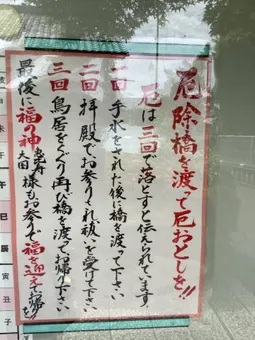 厄除橋を渡って厄おとしを!!
厄は三回で落とすと伝えられています
一回 手水をされた後に橋を渡って下さい
二回 拝殿でお参りされ祓いを受けて下さい
三回 鳥居をくぐり再び橋を渡ってお帰り下さい
最後に福の神 恵寿 大国 様もお参りで福を迎えてお帰りを
午
未
午
巳
辰
寅
丑
子